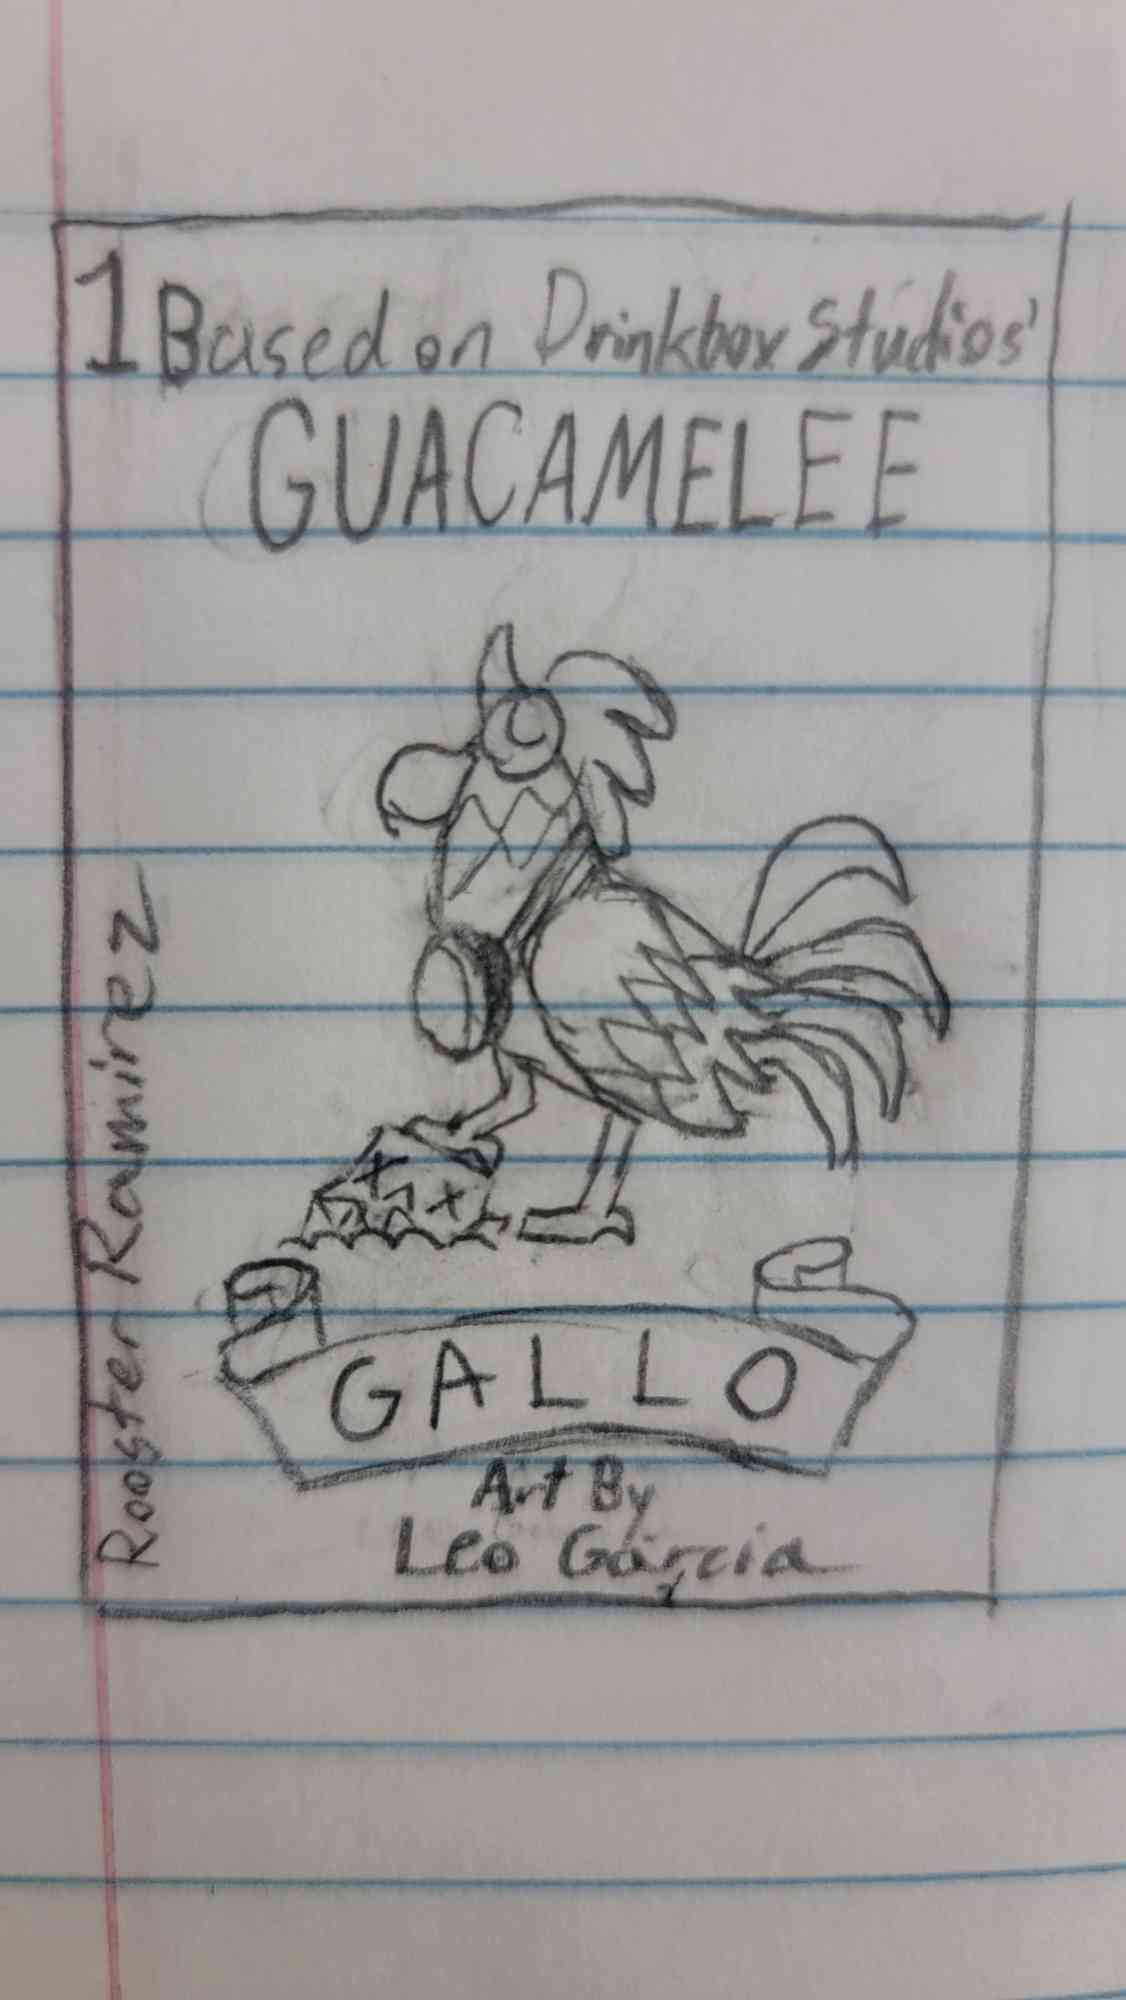 1 Based on Drinkbox Studios'
GUACAMELEE
Rooster Ramirez
GALLO
Art By
Leo Garcia